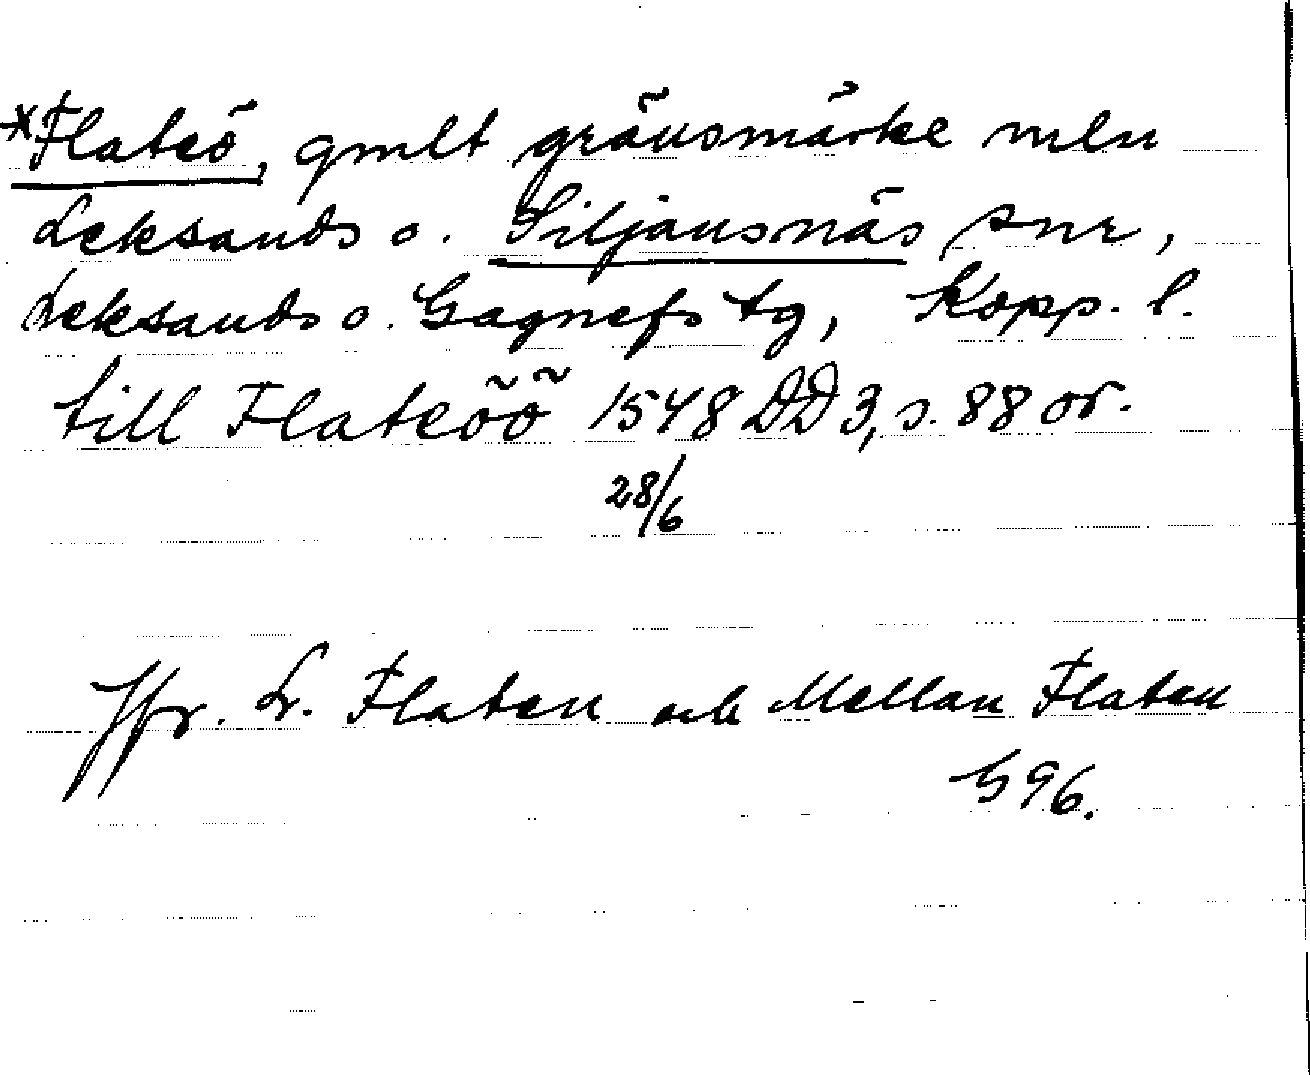 *Flateö, gmlt gränsmärke mln
Leksands o. Siljansnäs snr,
Leksands o. Gagnefs tg, Kopp. l.
till Flateöö 1548 DD 3, s. 88 or.
28/6
Jfr. L. Flaten och Mellan Flaten
G 96.